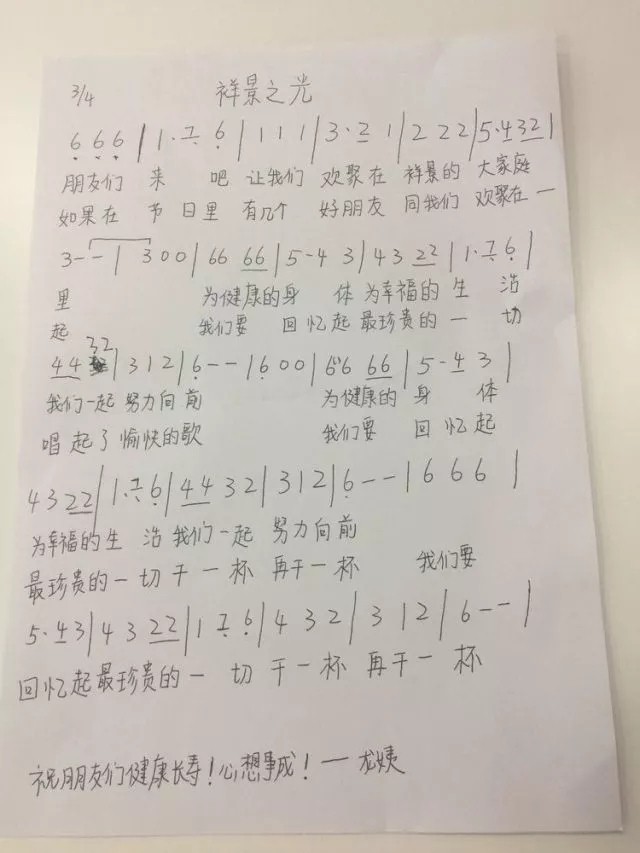 3/4 祥景之光
6 6 6 | 1· 7 6 | 1 1 1 | 3· 2 1 | 2 2 2 | 5·4 32 |
朋友们 来 吧 让我们 欢聚在 祥景的 大家庭
如果在 节日里 有几个 好朋友 同我们 欢聚在一
3 - - | 3 0 0 | 66 66 | 5·4 3 | 4 3 22 | 1·7 6 |
里 为健康的身 体为幸福的生 活
起 我们要 回忆起最珍贵的一 切
44 32 | 3 1 2 | 6 - - | 6 0 0 | 66 66 | 5·4 3 |
我们一起 努力向前 为健康的 身 体
唱起了愉快的歌 我们要 回忆起
4 3 22 | 1·7 6 | 44 3 2 | 3 1 2 | 6 - - | 6 6 6 |
为幸福的生 活我们一起 努力向前
最珍贵的一切干一杯 再干一杯 我们要
5·4 3 | 4 3 22 | 1 7 6 | 4 3 2 | 3 1 2 | 6 - - |
回忆起最珍贵的一 切干一杯 再干一 杯
祝朋友们健康长寿!心想事成!一龙姨